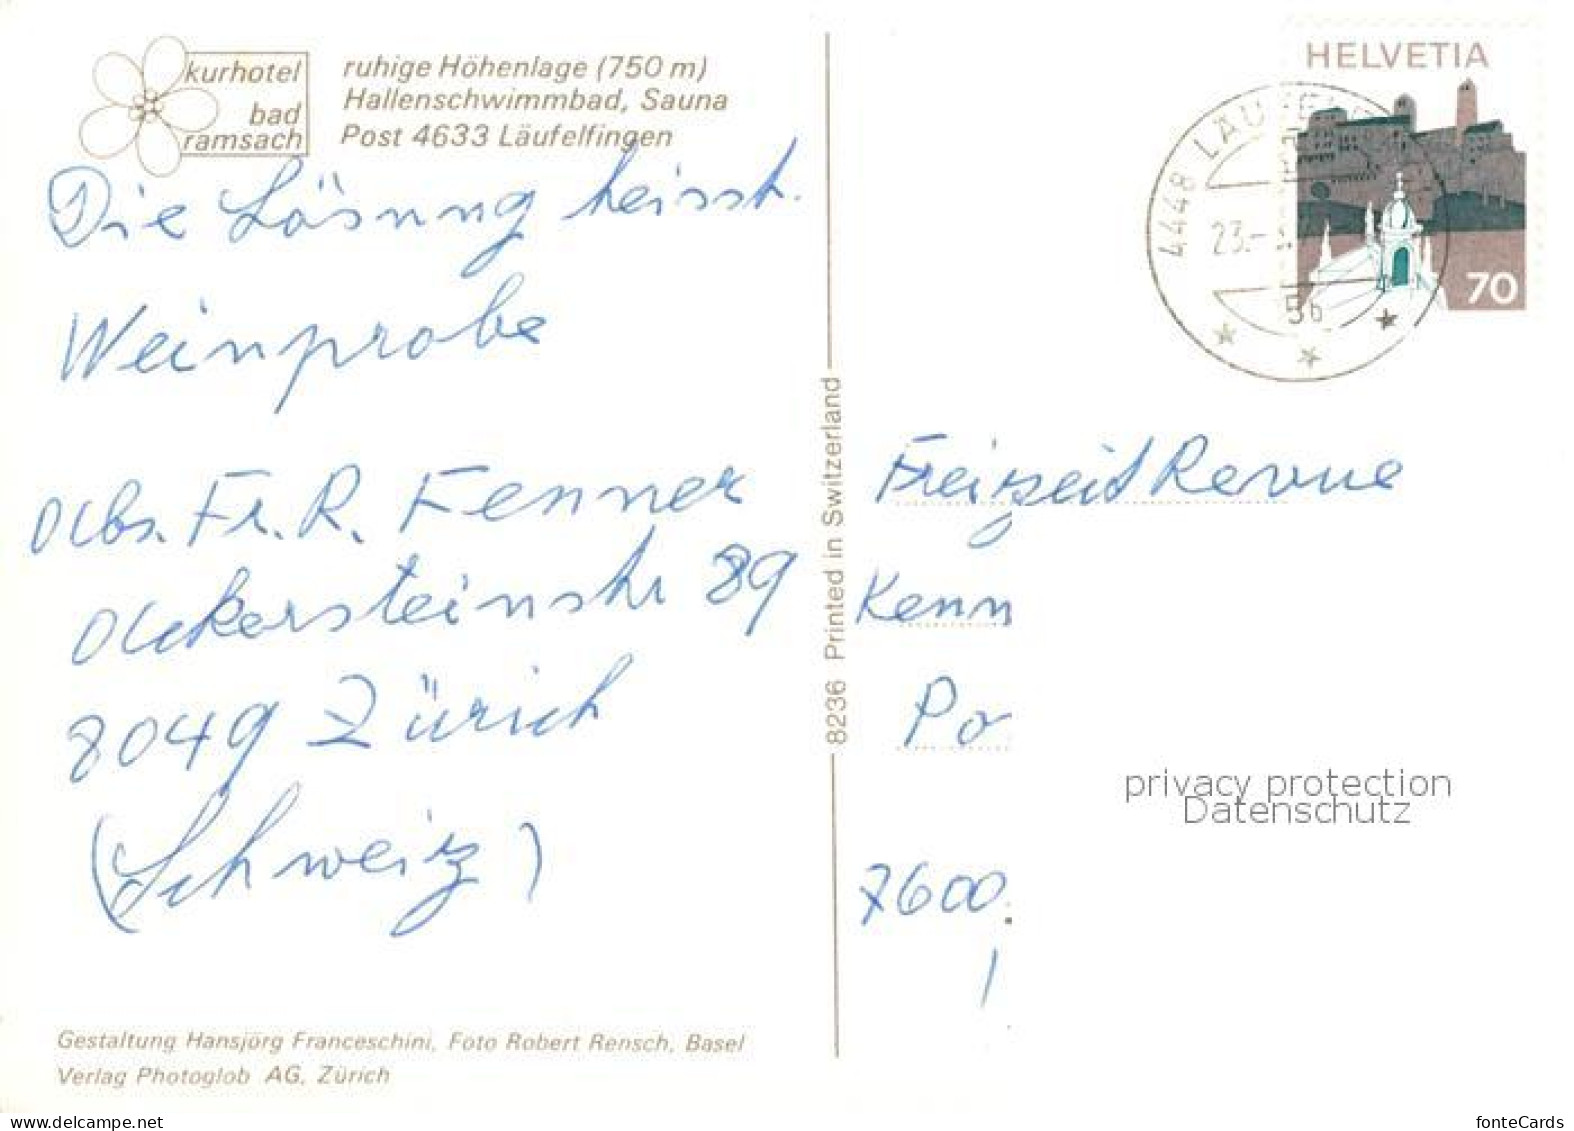 kurhotel
bad
ramsach
ruhige Höhenlage (750 m)
Hallenschwimmbad, Sauna
Post 4633 Läufelfingen
Die Lösung heisst.
Weinprobe
Abs. Fr. R. Fenner
Ackersteinstr 89
8049 Zürich
(Schweiz)
Gestaltung Hansjörg Franceschini, Foto Robert Rensch, Basel
Verlag Photoglob AG, Zürich
8236 Printed in Switzerland
HELVETIA
70
4448 LÄUFELF
23.-
Freizeit Revue
Kenn
Po
7600
privacy protection
Datenschutz
fonteCards